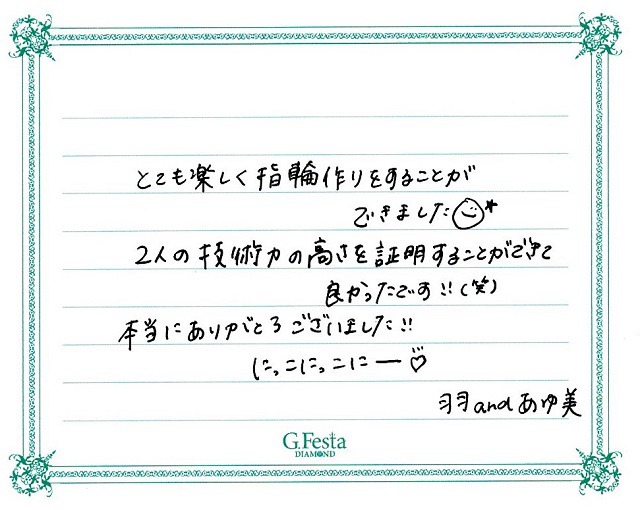 とても楽しく指輪作りをすることが
できました
2人の技術力の高さを証明することができて
良かったです!!(笑)
本当にありがとうございました!!
にっこにっこにー♡
羽andあゆ美
G.Festa
DIAMOND